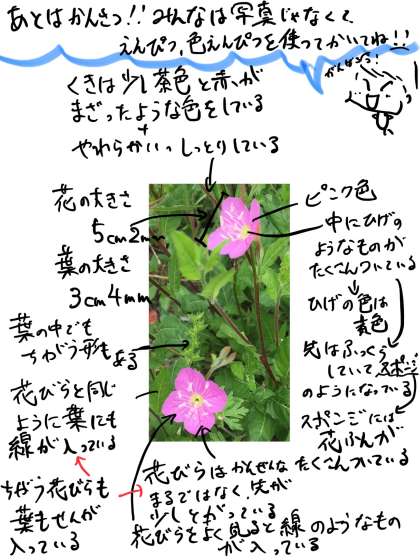 あとはかんさつ!! みんなは写真じゃなくて
えんぴつ、色えんぴつを使ってかいてね!!
がんばって!
くきは少し茶色と赤が
まざったような色をしている
+
やわらかい、しっとりしている
花の大きさ
5cm2mm
葉の大きさ
3cm4mm
葉の中でも
ちがう形も
ある
花びらと同じ
ように葉にも
線が入っている
ちがう花びらも
葉もせんが
入っている
ピンク色
中にひげの
ようなものが
たくさんついている
ひげの色は
黄色
先はふっくら
していてスポンジ
のようになっている
スポンジには
花ふんが
たくさんついている
花びらはかんぜんな
まるではなく、先が
少しとがっている
花びらをよく見ると線のようなもの
が入っている